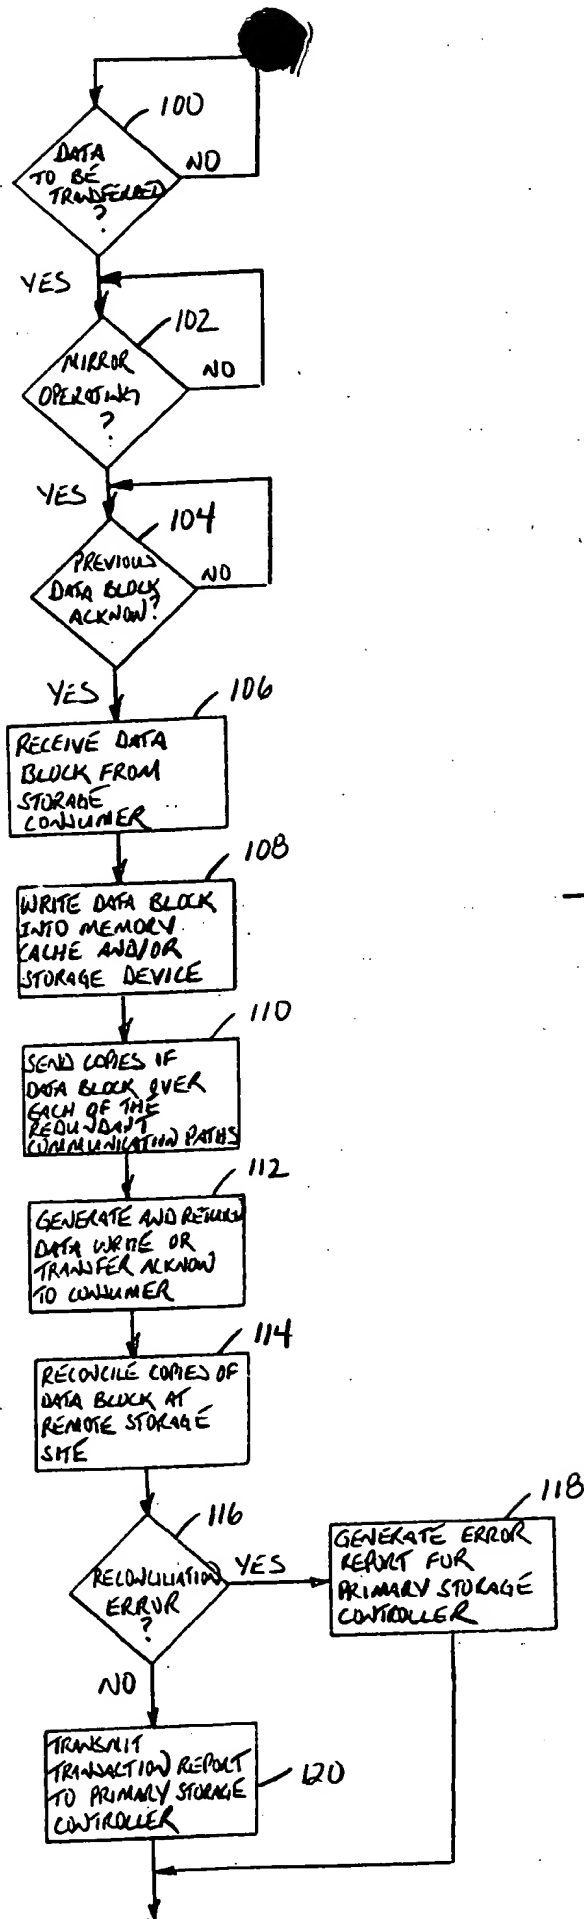 100
DATA
TO BE
TRANSFERRED
?
NO
YES
102
MIRROR
OPERATING
?
NO
YES
104
PREVIOUS
DATA BLOCK
ACKNOW?
NO
YES
106
RECEIVE DATA
BLOCK FROM
STORAGE
CONSUMER
108
WRITE DATA BLOCK
INTO MEMORY
CACHE AND/OR
STORAGE DEVICE
110
SEND COPIES OF
DATA BLOCK OVER
EACH OF THE
REDUNDANT
COMMUNICATION PATHS
112
GENERATE AND RETURN
DATA WRITE OR
TRANSFER ACKNOW
TO CONSUMER
114
RECONCILE COPIES OF
DATA BLOCK AT
REMOTE STORAGE
SITE
116
RECONCILIATION
ERROR
?
YES
118
GENERATE ERROR
REPORT FOR
PRIMARY STORAGE
CONTROLLER
NO
TRANSMIT
TRANSACTION REPORT
TO PRIMARY STORAGE
CONTROLLER
120